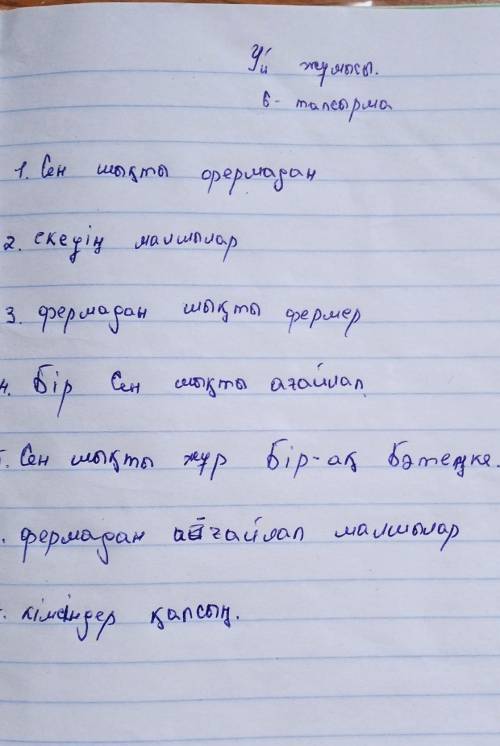 Үй жұмысы.
6- тапсырма
1. Сен шықты фермадан
2. екедің малшылар
3. фермадан шықты фермер
4. Бір Сен шықты ағайлап
Сен шықты жүр Бір-ақ Бәтеңке.
фермадан айғайлап малшылар
кімсіңдер қапсың.